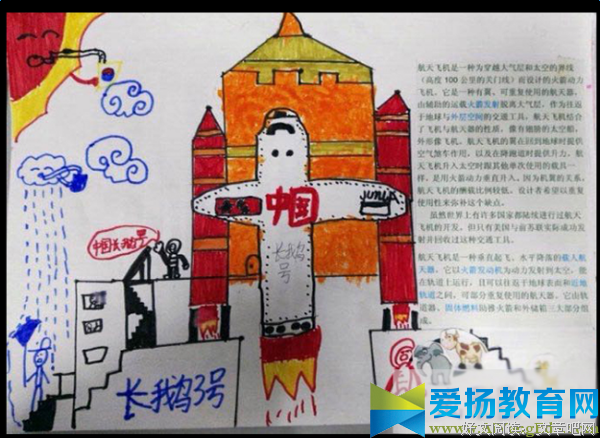 中国
长鹅
号
长鹅3号
航天飞机是一种为穿越大气层和太空的界线
（高度 100 公里的关门线）而设计的火箭动力
飞机。它是一种有翼、可重复使用的航天器，
由辅助的运载火箭发射脱离大气层，作为往返
于地球与外层空间的交通工具，航天飞机结合
了飞机与航天器的性质，像有翅膀的太空船，
外形像飞机。航天飞机的翼在回到地球时提供
空气煞车作用，以及在降跑道时提供升力。航
天飞机升入太空时跟其他单次使用的载具一
样，是用火箭动力垂直升入。因为机翼的关系，
航天飞机的酬载比例较低。设计者希望以重复
使用性来弥补这个缺点。
虽然世界上有许多国家都陆续进行过航天
飞机的开发，但只有美国与前苏联实际成功发
射并回收过这种交通工具。
航天飞机是一种垂直起飞、水平降落的载人航
天器，它以火箭发动机为动力发射到太空，能
在轨道上运行，且可以往返于地球表面和近地
轨道之间，可部分重复使用的航天器。它由轨
道器、固体燃料助推火箭和外储箱三大部分组
成。
爱扬教育网